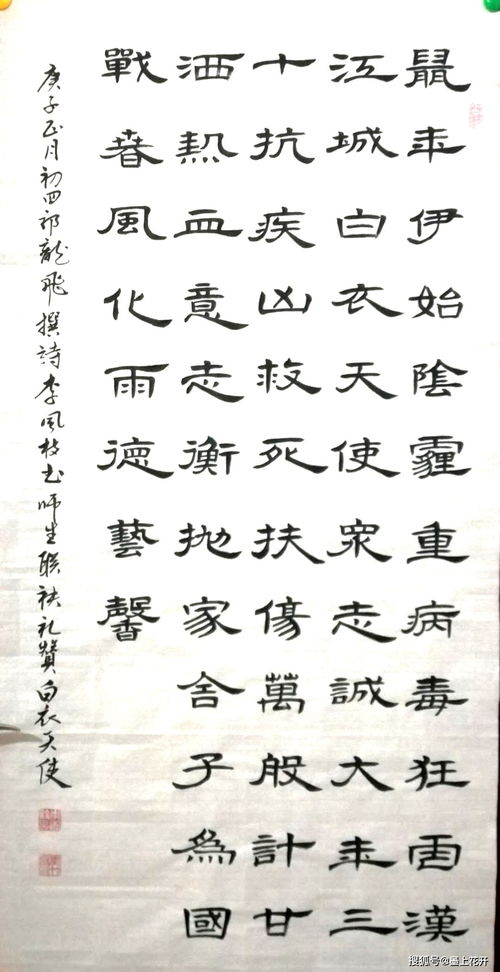 鼠年伊始陰霾重病毒狂漢
江城白衣天使眾志誠大年三
十抗疾凶救死扶傷萬般計甘
洒熱血意志衡拋家舍子為國
戰春風化雨德藝馨
庚子正月初四祁龍飛撰詩李风枝书师生联袂礼赞白衣天使
搜狐号@墨上花开